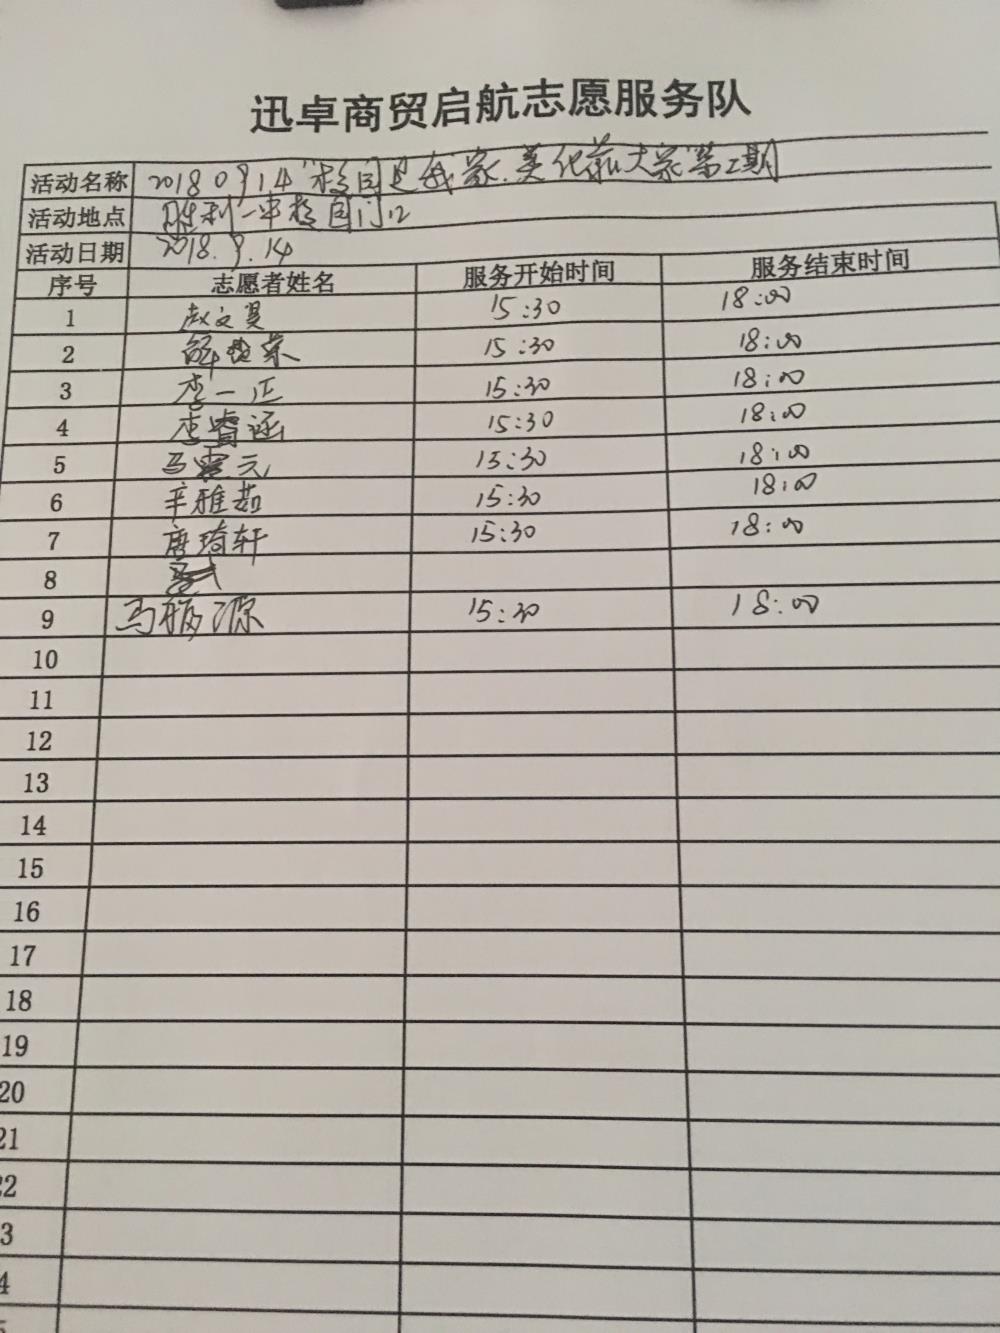 迅卓商贸启航志愿服务队
活动名称 20180914"校园是我家,美化靠大家"第二期
活动地点 胜利一中校园门口
活动日期 2018.9.14
序号 志愿者姓名 服务开始时间 服务结束时间
1 赵文昊 15:30 18:00
2 15:30 18:00
3 李一正 15:30 18:00
4 李睿涵 15:30 18:00
5 马震元 15:30 18:00
6 辛雅茹 15:30 18:00
7 唐琦轩 15:30 18:00
8
9 马源 15:30 18:00
10
11
12
13
14
15
16
17
18
19
20
21
22
3
4
5